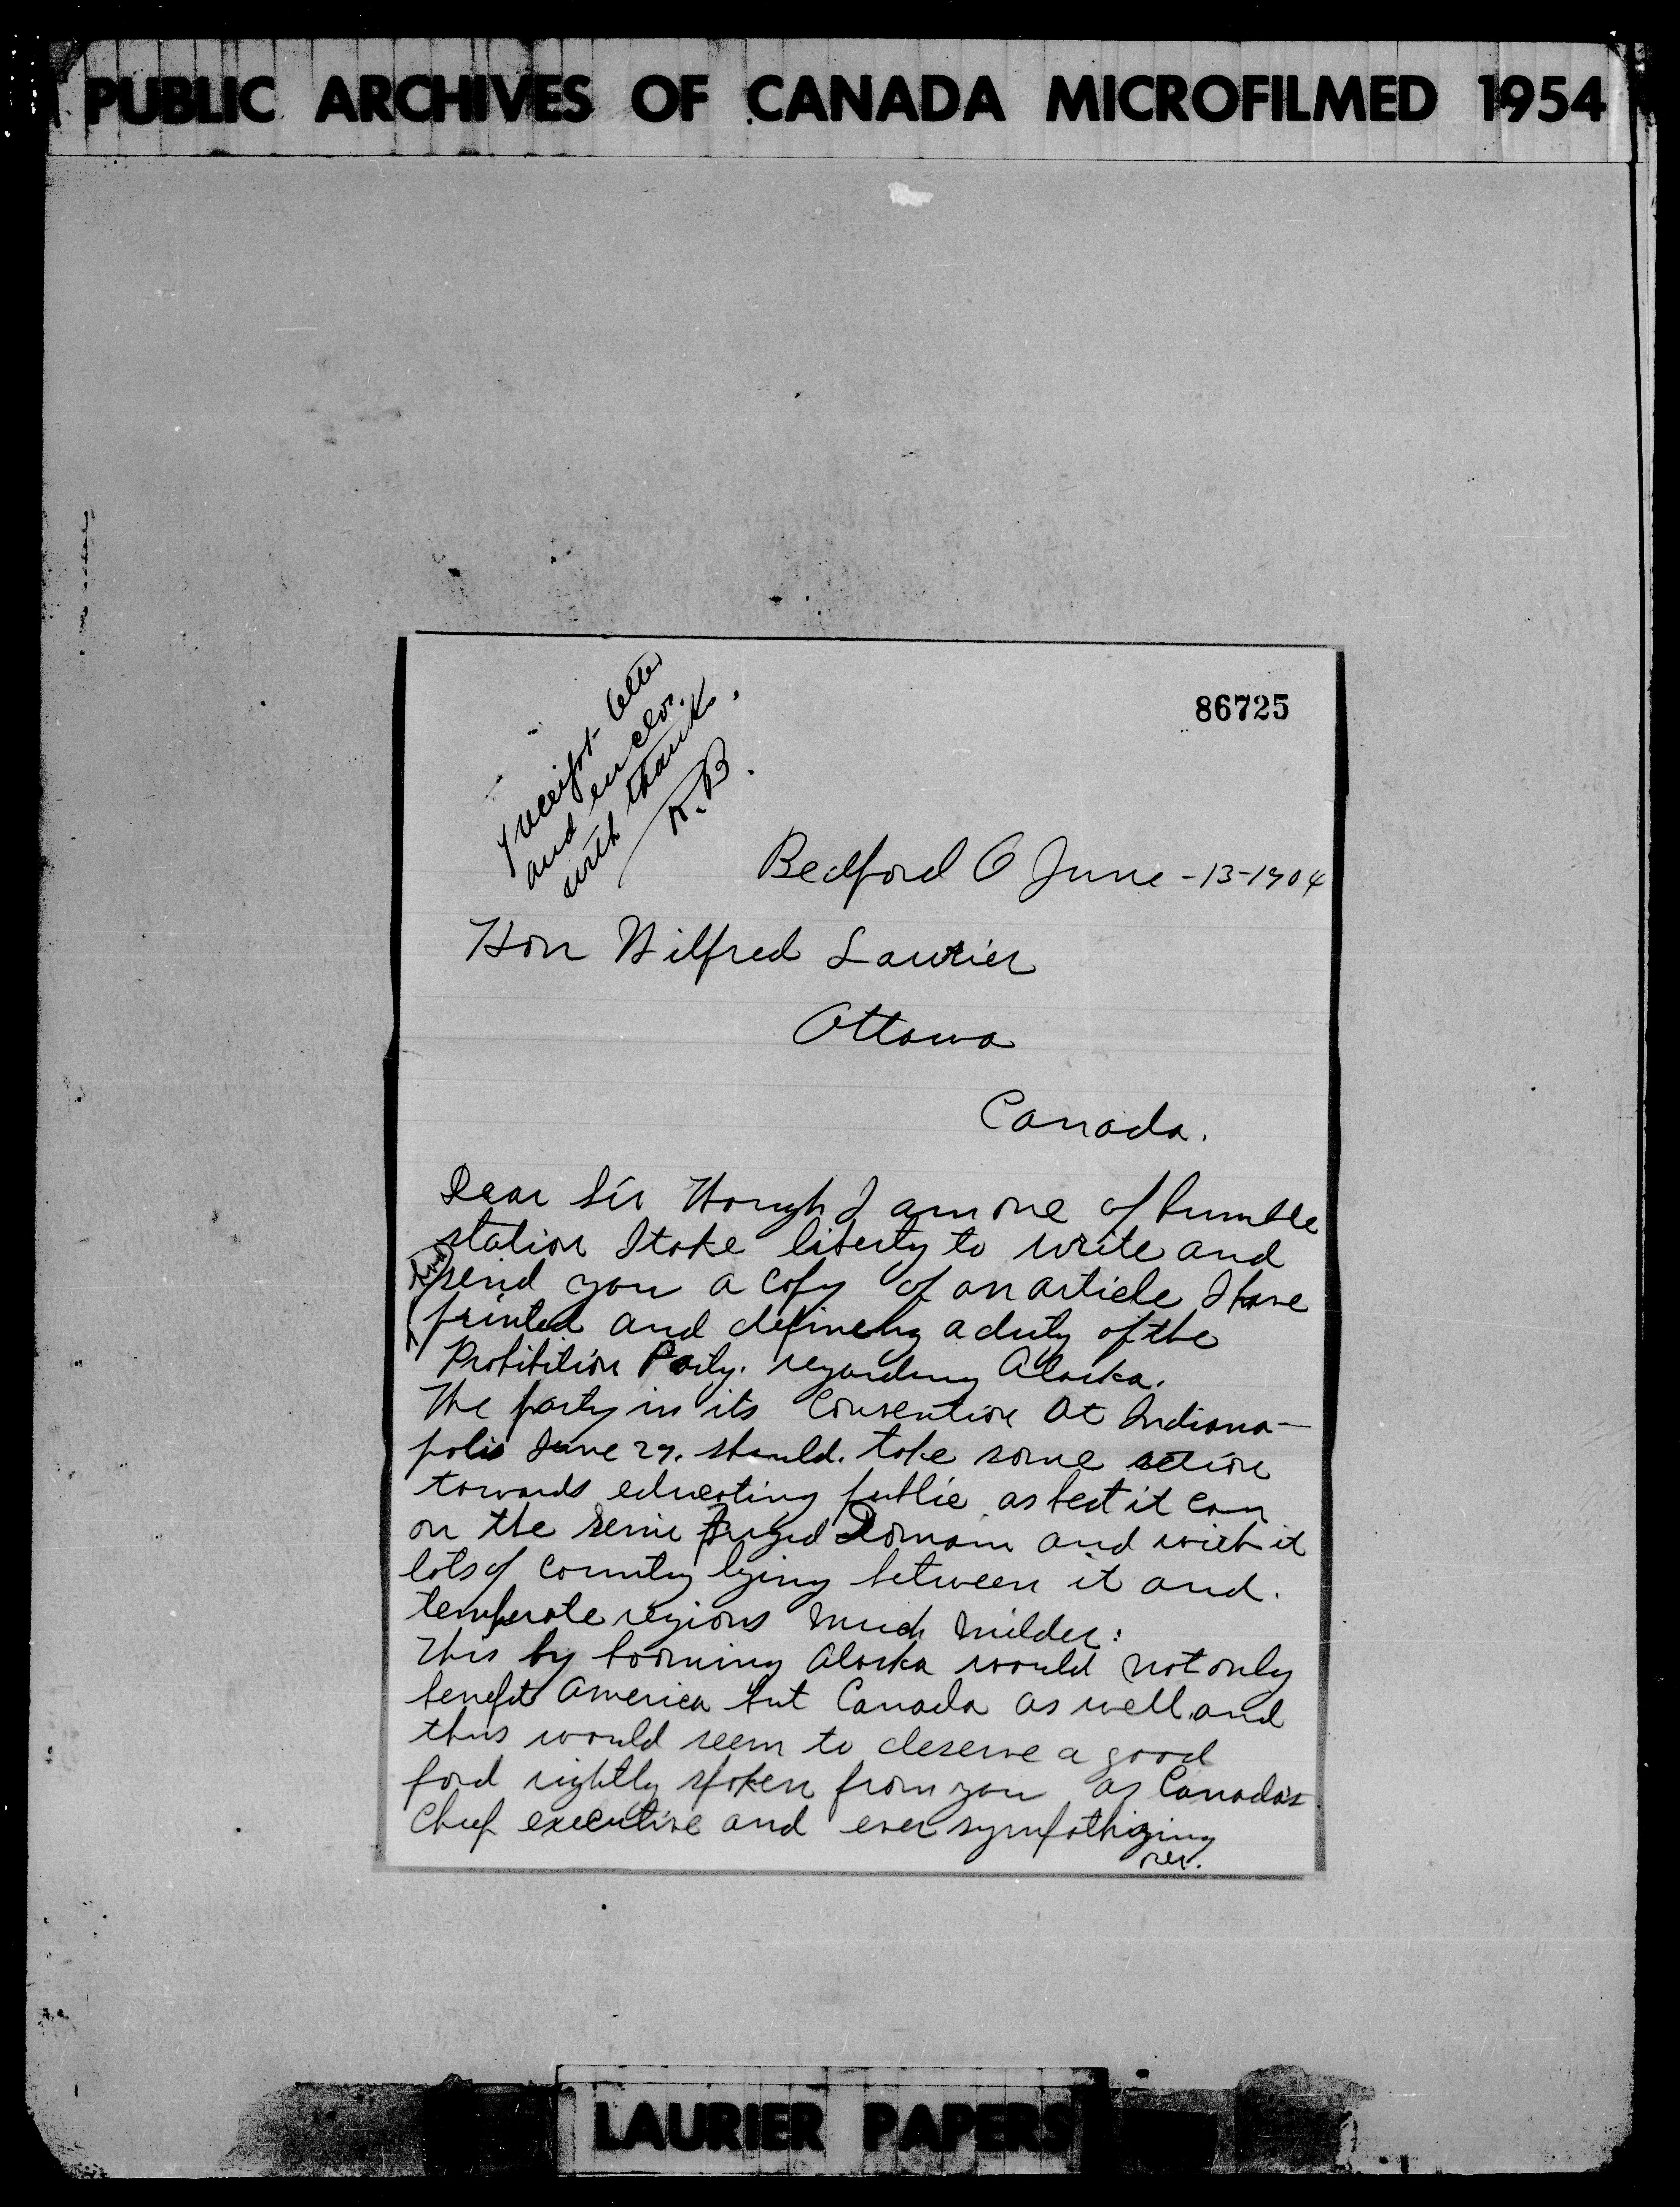 PUBLIC ARCHIVES OF CANADA MICROFILMED 1954
86725
receipt letter
and enclos.
with thanks.
R.B.
Bedford O June -13-1904
Hon Wilfred Laurier
Ottawa
Canada.
Dear Sir Though I am one of humble
station I take liberty to write and
send you a copy of an article I have
printed and defineing a duty of the
Prohibition Party. regarding Alaska.
The party in its Convention at Indiana-
polis June 29. should. take some action
towards educating public as best it can
on the semi frigid Domain and with it
lots of country lying between it and.
temperate regions much milder:
This by booming Alaska would not only
benefit America but Canada as well, and
thus would seem to deserve a good
ford rightly spoken from you as Canada's
Chief executive and ever sympathizing
over.
LAURIER PAPERS